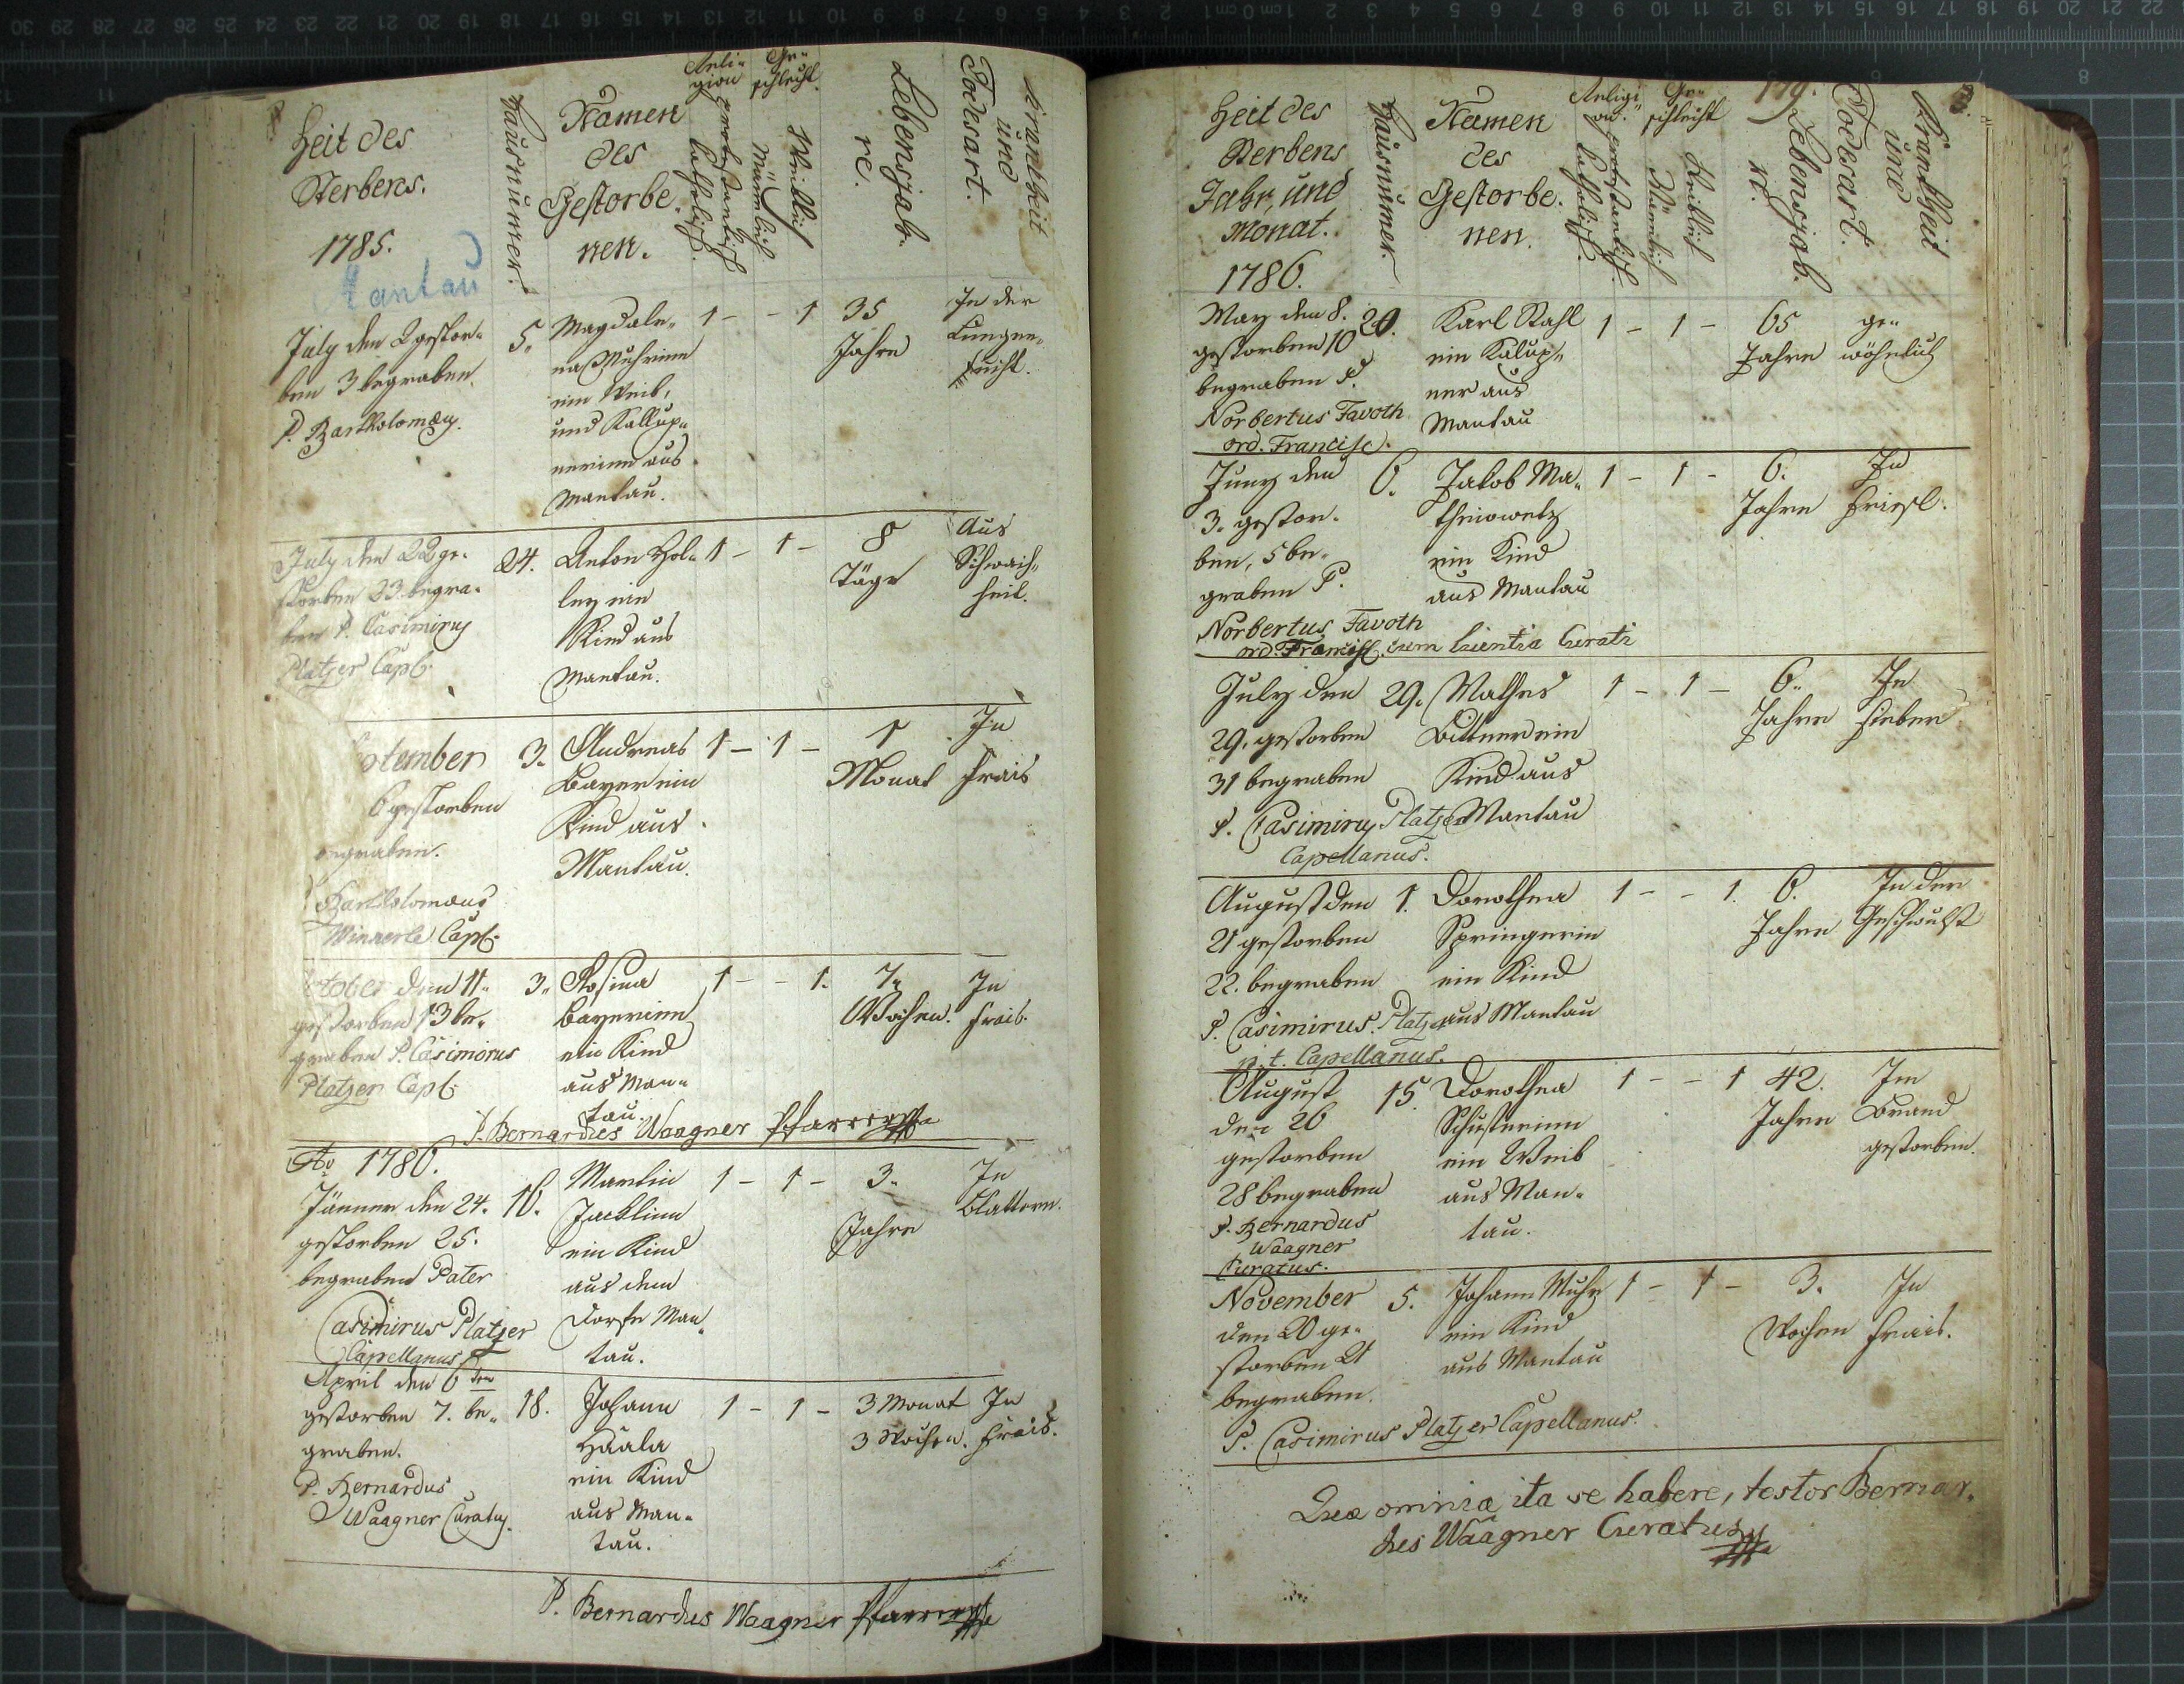 Zeit des
Sterbens.
1785.
Mantau
Hausnummer.
Namen
des
Gestorbe,
nen.
Reli-
gion
Katholisch.
protestantisch
Ge-
schlecht.
Männlich
Weiblich
Lebensjah.
re.
Krankheit
und
Todesart.
July den 2 gestor-
ben 3 begraben.
P. Bartholomæy.
5.
Magdale-
ein Weib,
und Kallup-
nerinn aus
Mantau.
1 - - 1
35
Jahre
In der
Lungen-
sucht.
July den 22 ge-
storben 23. begra-
ben P. Casimirus
Platzer Capl.
24.
Anton Hol-
ley ein
Kind aus
Mantau.
1 - 1 -
8
Täge
Aus
Schwach-
heit.
tember
6 gestorben
begraben.
Bartholomæus
Capl.
3.
Andreas
Bayer ein
Kind aus
Mantau.
1 - 1 -
1
Monat
In
Frais
october den 11.
gestorben 13 be-
graben P. Casimirus
Platzer Capl.
3.
Rosina
Bayerinn
ein Kind
aus Man-
tau.
1 - - 1.
7.
Wochen.
In
Frais.
P. Bernardus Waagner Pfarrer
Ao 1786.
Jänner den 24.
gestorben 25.
begraben Pater
Casimirus Platzer
Capellanus
16.
Martin
Jacklinn
ein Kind
aus dem
Dorfe Man-
tau.
1 - 1 -
3.
Jahre
In
Blattern.
April den 6 ten
gestorben 7. be-
graben.
P. Bernardus
Waagner Curatus.
18.
Johann
Häala
ein Kind
aus Man-
tau.
1 - 1 -
3 Monat
3 Wochen.
In
Frais.
P. Bernardus Waagner Pfarrer
Zeit des
Sterbens
Jahr, und
Monat.
1786.
Hausnummer.
Namen
des
Gestorbe.
nen.
Religi-
on.
Katholisch.
protestantisch.
Ge-
schlecht
Männlich
Weiblich
179.
Lebensjah.
re.
Krankheit
und
Todesart.
May den 8.
gestorben 10
begraben P.
Norbertus Favoth
ord. Francisc.
20.
Karl Stahl
ein Kalup-
ner aus
Mantau
1 - 1 -
65
Jahre
ge-
wöhnlich
Juny den
3. gestor-
ben, 5 be-
graben P.
Norbertus Favoth
ord. Francisc. cum licentia Curati
6.
Jakob Ma-
theiowetz
ein Kind
aus Mantau
1 - 1 -
6.
Jahre
In
Friesl.
July den
29. gestorben
31 begraben
P. Casimirus Platzer
Capellanus.
29.
Mathes
Bittner ein
Kind aus
Mantau
1 - 1 -
6.
Jahre
In
Fieber
August den
21 gestorben
22. begraben
P. Casimirus. Platzer
p. t. Capellanus.
1.
Dorothea
Springerin
ein Kind
aus Mantau
1 - - 1.
6.
Jahre
In der
Geschwulst
August
den 26
gestorben
28 begraben
P. Bernardus
Waagner
Curatus.
15.
Dorothea
Schusterinn
ein Weib
aus Man-
tau.
1 - - 1
42.
Jahre
Im
Brand
gestorben.
November
den 20 ge-
storben 21
begraben.
P. Casimirus Platzer Capellanus.
5.
Johann Muhr
ein Kind
aus Mantau
1 - 1 -
3.
Wochen
In
Frais.
Quæ omnia ita se habere, testor Bernar-
dus Waagner Curatus